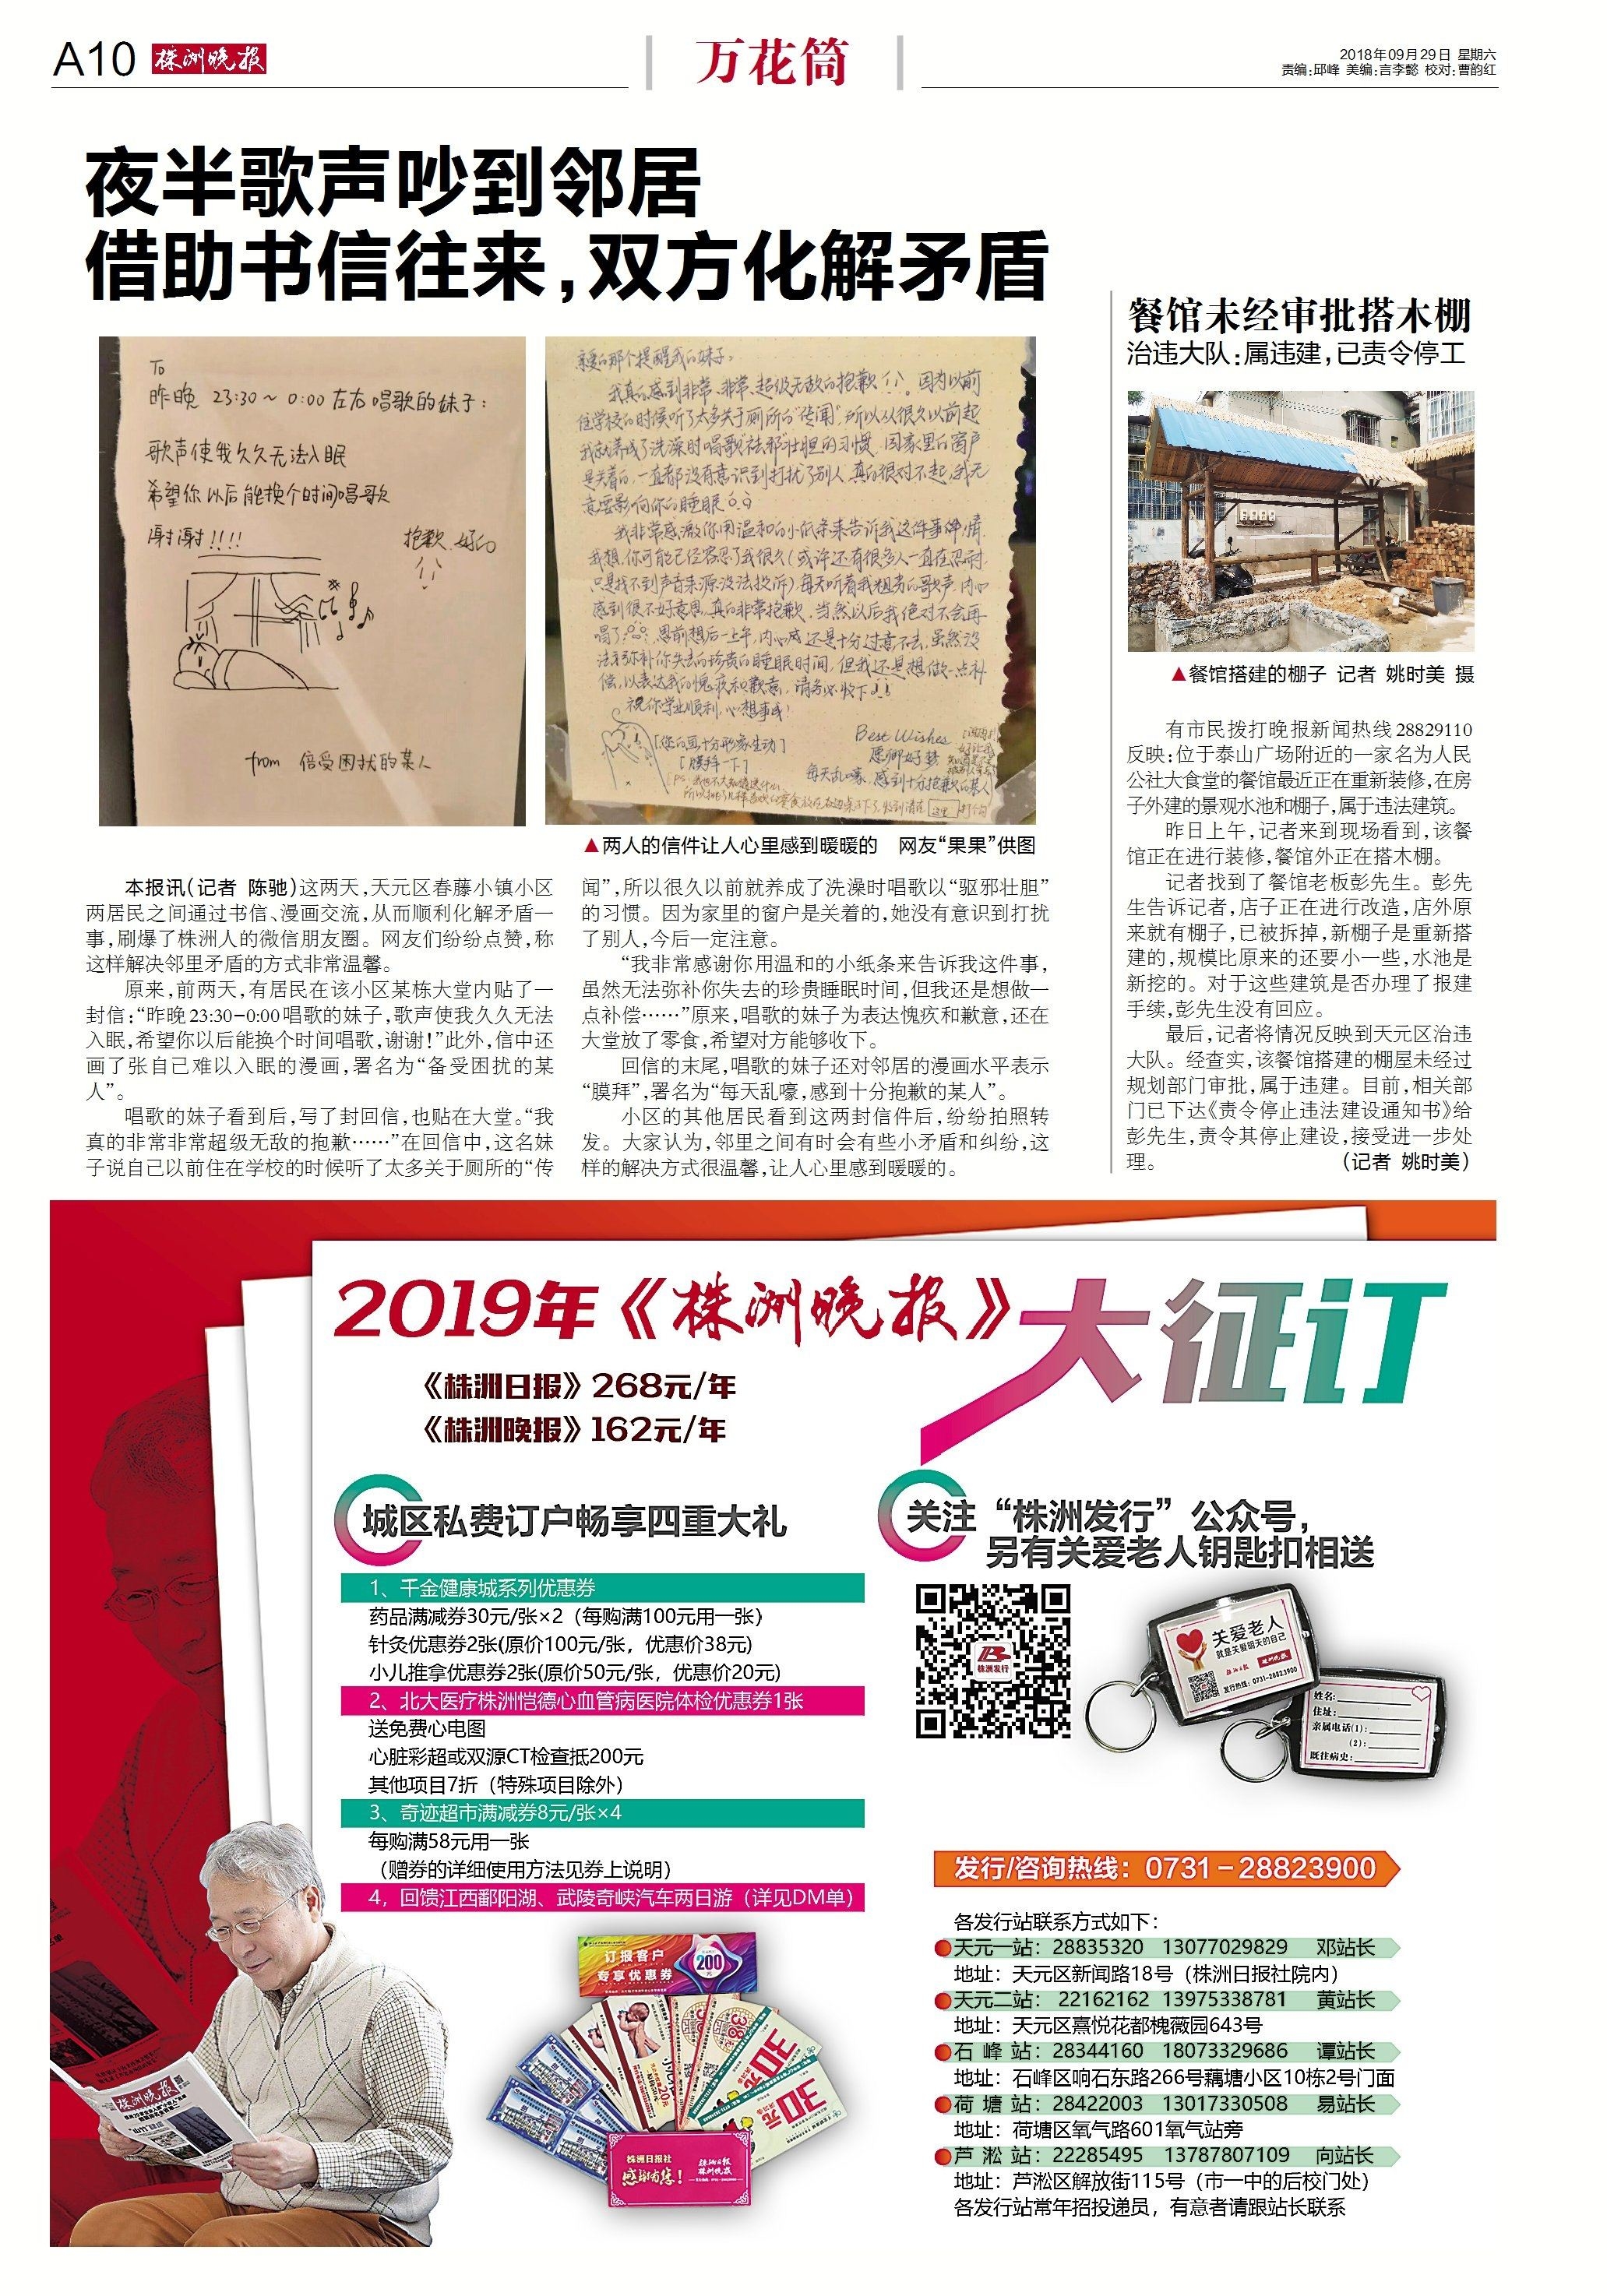 A10 株洲晚报
万花筒
2018年09月29日 星期六
责编:邱峰 美编:言李懿 校对:曹韵红
夜半歌声吵到邻居
借助书信往来,双方化解矛盾
To
昨晚 23:30～0:00左右唱歌的妹子:
歌声使我久久无法入眠
希望你以后能换个时间唱歌
谢谢!!!!
抱歉、好的
from 倍受困扰的某人
亲爱的那个提醒我的妹子。
我真的感到非常、非常、超级无敌的抱歉 因为以前
住学校的时候听了太多关于厕所的“传闻”所以从很久以前起
我就养成了洗澡时唱歌“祛邪”壮胆的习惯 因家里的窗户
是关着的,一直都没有意识到打扰了别人,真的很对不起,我无
意要影响你的睡眠
我非常感激你用温和的小纸条来告诉我这件事情
我想,你可能已经容忍了我很久(或许还有很多人一直在忍耐
只是找不到声音来源没法投诉)每天听着我粗劣的歌声,内心
感到很不好意思,真的非常抱歉,当然以后我绝对不会再
唱了 思前想后一上午,内心感还是十分过意不去,虽然没
法弥补你失去的珍贵的睡眠时间,但我还是想做一点补
偿,以表达我的愧疚和歉意,请务必收下!!
祝你学业顺利,心想事成!
[您的画十分形象生动]
[膜拜一下]
Best Wishes
愿卿好梦
每天乱嚎,感到十分抱歉的某人
▲两人的信件让人心里感到暖暖的 网友“果果”供图
本报讯(记者 陈驰)这两天,天元区春藤小镇小区
两居民之间通过书信、漫画交流,从而顺利化解矛盾一
事,刷爆了株洲人的微信朋友圈。网友们纷纷点赞,称
这样解决邻里矛盾的方式非常温馨。
原来,前两天,有居民在该小区某栋大堂内贴了一
封信:“昨晚23:30-0:00唱歌的妹子,歌声使我久久无法
入眠,希望你以后能换个时间唱歌,谢谢!”此外,信中还
画了张自己难以入眠的漫画,署名为“备受困扰的某
人”。
唱歌的妹子看到后,写了封回信,也贴在大堂。“我
真的非常非常超级无敌的抱歉……”在回信中,这名妹
子说自己以前住在学校的时候听了太多关于厕所的“传
闻”,所以很久以前就养成了洗澡时唱歌以“驱邪壮胆”
的习惯。因为家里的窗户是关着的,她没有意识到打扰
了别人,今后一定注意。
“我非常感谢你用温和的小纸条来告诉我这件事,
虽然无法弥补你失去的珍贵睡眠时间,但我还是想做一
点补偿……”原来,唱歌的妹子为表达愧疚和歉意,还在
大堂放了零食,希望对方能够收下。
回信的末尾,唱歌的妹子还对邻居的漫画水平表示
“膜拜”,署名为“每天乱嚎,感到十分抱歉的某人”。
小区的其他居民看到这两封信件后,纷纷拍照转
发。大家认为,邻里之间有时会有些小矛盾和纠纷,这
样的解决方式很温馨,让人心里感到暖暖的。
餐馆未经审批搭木棚
治违大队:属违建,已责令停工
▲餐馆搭建的棚子 记者 姚时美 摄
有市民拨打晚报新闻热线28829110
反映:位于泰山广场附近的一家名为人民
公社大食堂的餐馆最近正在重新装修,在房
子外建的景观水池和棚子,属于违法建筑。
昨日上午,记者来到现场看到,该餐
馆正在进行装修,餐馆外正在搭木棚。
记者找到了餐馆老板彭先生。彭先
生告诉记者,店子正在进行改造,店外原
来就有棚子,已被拆掉,新棚子是重新搭
建的,规模比原来的还要小一些,水池是
新挖的。对于这些建筑是否办理了报建
手续,彭先生没有回应。
最后,记者将情况反映到天元区治违
大队。经查实,该餐馆搭建的棚屋未经过
规划部门审批,属于违建。目前,相关部
门已下达《责令停止违法建设通知书》给
彭先生,责令其停止建设,接受进一步处
理。 (记者 姚时美)
2019年《株洲晚报》大征订
《株洲日报》268元/年
《株洲晚报》162元/年
城区私费订户畅享四重大礼
1、千金健康城系列优惠券
药品满减券30元/张×2（每购满100元用一张）
针灸优惠券2张(原价100元/张，优惠价38元)
小儿推拿优惠券2张(原价50元/张，优惠价20元)
2、北大医疗株洲恺德心血管病医院体检优惠券1张
送免费心电图
心脏彩超或双源CT检查抵200元
其他项目7折（特殊项目除外）
3、奇迹超市满减券8元/张×4
每购满58元用一张
（赠券的详细使用方法见券上说明）
4，回馈江西鄱阳湖、武陵奇峡汽车两日游（详见DM单）
关注“株洲发行”公众号，
另有关爱老人钥匙扣相送
株洲发行
关爱老人
就是关爱明天的自己
株洲日报 株洲晚报
发行热线：0731-28823900
姓名:
住址:
亲属电话(1):
(2):
既往病史:
订报客户
专享优惠券
200元
38元
30元
30元
株洲日报社
感谢有您!
株洲日报
株洲晚报
株洲晚报
发行/咨询热线：0731－28823900
各发行站联系方式如下：
天元一站：28835320 13077029829 邓站长
地址：天元区新闻路18号（株洲日报社院内）
天元二站：22162162 13975338781 黄站长
地址：天元区熹悦花都槐薇园643号
石峰站：28344160 18073329686 谭站长
地址：石峰区响石东路266号藕塘小区10栋2号门面
荷塘站：28422003 13017330508 易站长
地址：荷塘区氧气路601氧气站旁
芦淞站：22285495 13787807109 向站长
地址：芦淞区解放街115号（市一中的后校门处）
各发行站常年招投递员，有意者请跟站长联系